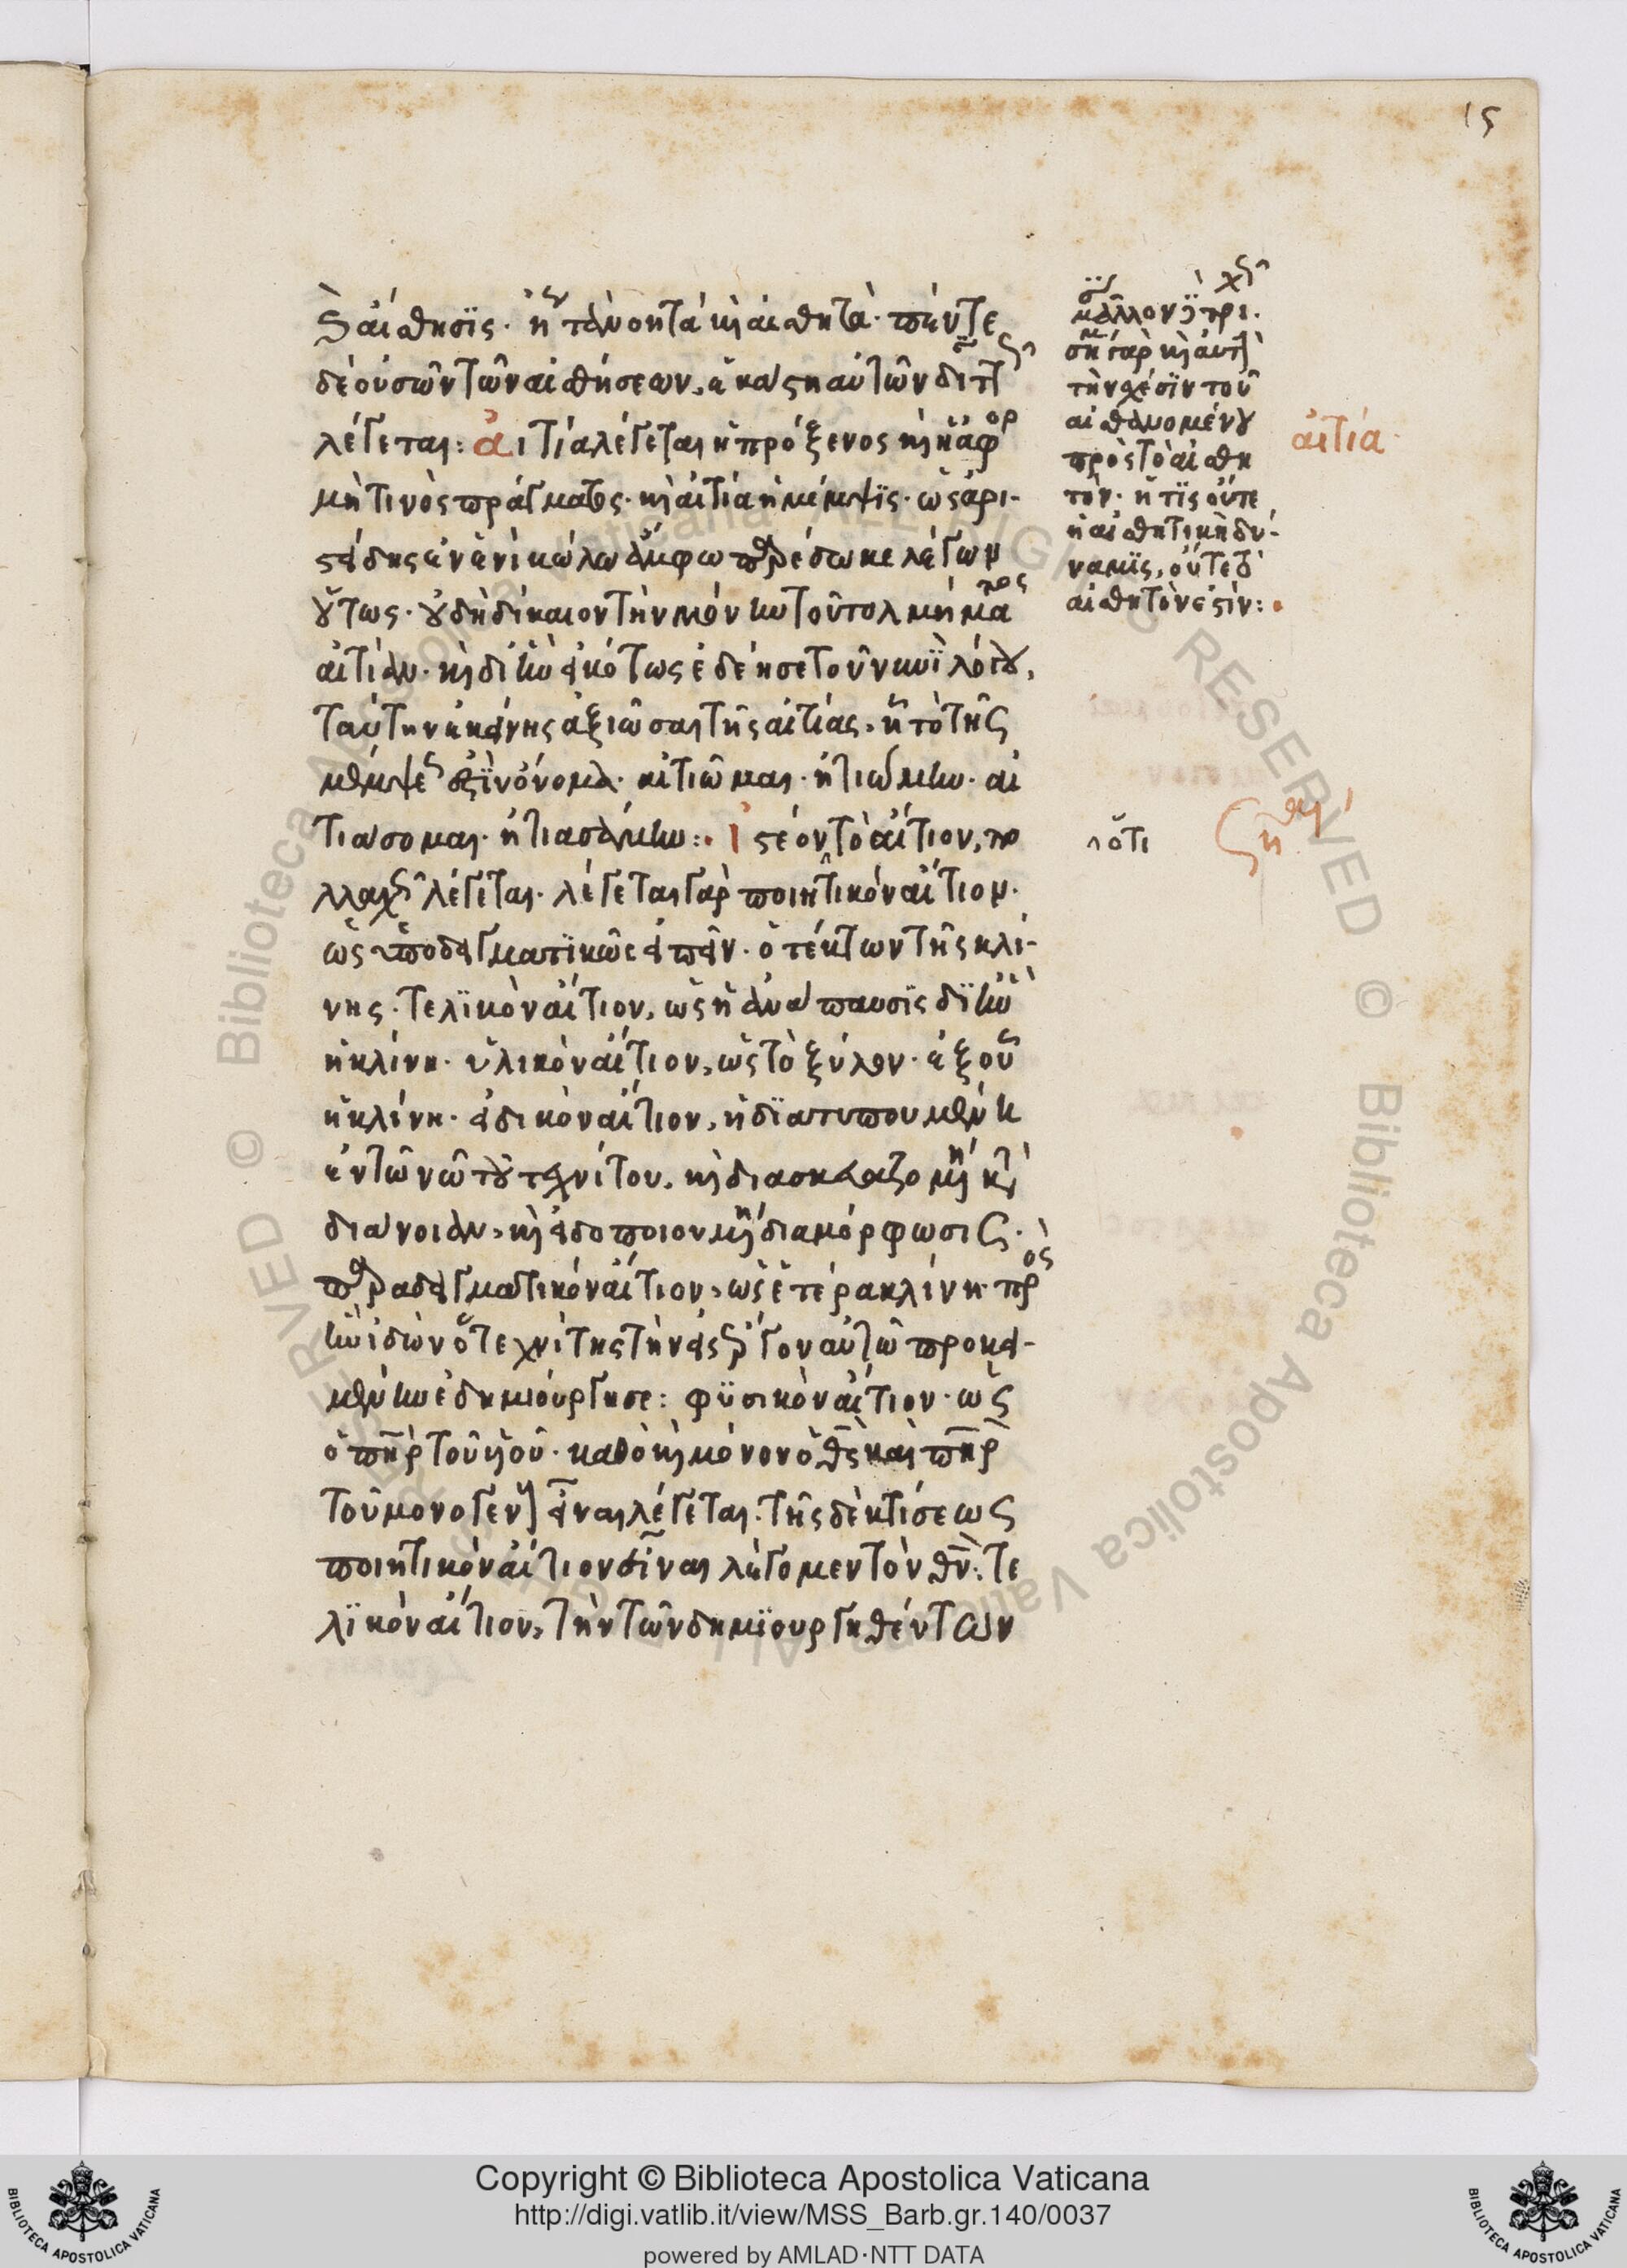 15
αἴσθησις· ἢ τὰ νοητὰ καὶ αἰσθητά· πέντε
δὲ οὐσῶν τῶν αἰσθήσεων, ἑκάστη αὐτῶν διττῶς
λέγεται: αἰτία λέγεται ἡ πρόξενος καὶ ἡ ἀφορ
μή τινος πράγματος· καὶ αἰτία ἡ μέμψις· ὡς ἀρι-
στείδης ἐν ἑνὶ κώλω ἄμφω παρέσωκε λέγων
οὕτως· οὐ δὴ δίκαιον τὴν μόνην τοῦ τολμήματος
αἰτίαν· καὶ δι' ἣν εἰκότως ἐδέησε τουνκυῒ λόγου,
ταύτην ἐκείνης ἀξιῶσαι τῆς αἰτίας, ἢ τὸ τῆς
μέμψεως ἐστὶν ὄνομα· αἰτιῶμαι· ἠτιώμην· αἰ
τιάσομαι· ἠτιασάμην: ἰστέον τὸ αἴτιον, πο
λλαχῶς λέγεται· λέγεται γὰρ ποιητικὸν αἴτιον·
ὡς ὑποδειγματικῶς εἰπεῖν· ὁ τέκτων τῆς κλί-
νης· τελικὸν αἴτιον, ὡς ἡ ἀνάπαυσις δι' ἣν
ἡ κλίνη· ὑλικὸν αἴτιον, ὡς τὸ ξύλον· ἐξ οὗ
ἡ κλίνη· εἰδικὸν αἴτιον, ἡ διατυπουμένη
ἐν τῶ νῶ τοῦ τεχνίτου, καὶ διασκευαζομένη κατὰ
διάνοιαν, καὶ εἰδοποιουμένη διαμόρφωσις·
παραδειγματικὸν αἴτιον, ὡς ἑτέρα κλίνη· πρὸς
ἣν ἰδὼν ὁ τεχνίτης τὴν εἰς ἔργον αὐτῶ προκει-
μένην ἐδημιούργησε: φυσικὸν αἴτιον· ὡς
ὁ πηρ τοῦ υἱοῦ· καθὸ καὶ μόνον ὁ θς καὶ πηρ
τοῦ μονογενοῦς εἶναι λέγεται· τῆς δὲ κτίσεως
ποιητικὸν αἴτιον εἶναι λέγομεν τὸν θν: τε
λικὸν αἴτιον, τὴν τῶν δημιουργηθέντων
μᾶλλον δὲ τρι
σὴ γὰρ καὶ αὐτὴ
τὴν σχέσιν τοῦ
αἰσθανομένου
πρὸς τὸ αἰσθη
τόν· ἥτις οὔτε
ἡ αἰσθητικὴ δύ-
ναμις, οὔτε τὸ
αἰσθητόν ἐστίν:
αἰτία
ὅτι
Copyright © Biblioteca Apostolica Vaticana
http://digi.vatlib.it/view/MSS_Barb.gr.140/0037
powered by AMLAD·NTT DATA
BIBLIOTECA APOSTOLICA VATICANA
BIBLIOTECA APOSTOLICA VATICANA